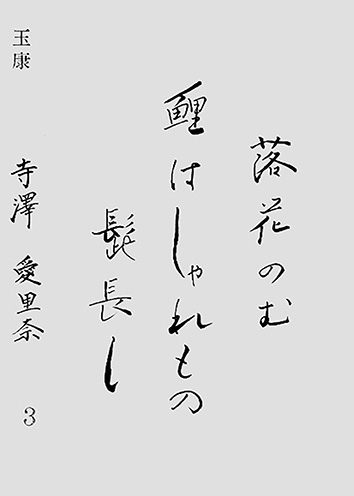 落花のむ
鯉はしゃれもの
髭長し
玉康
寺澤 愛里奈 3